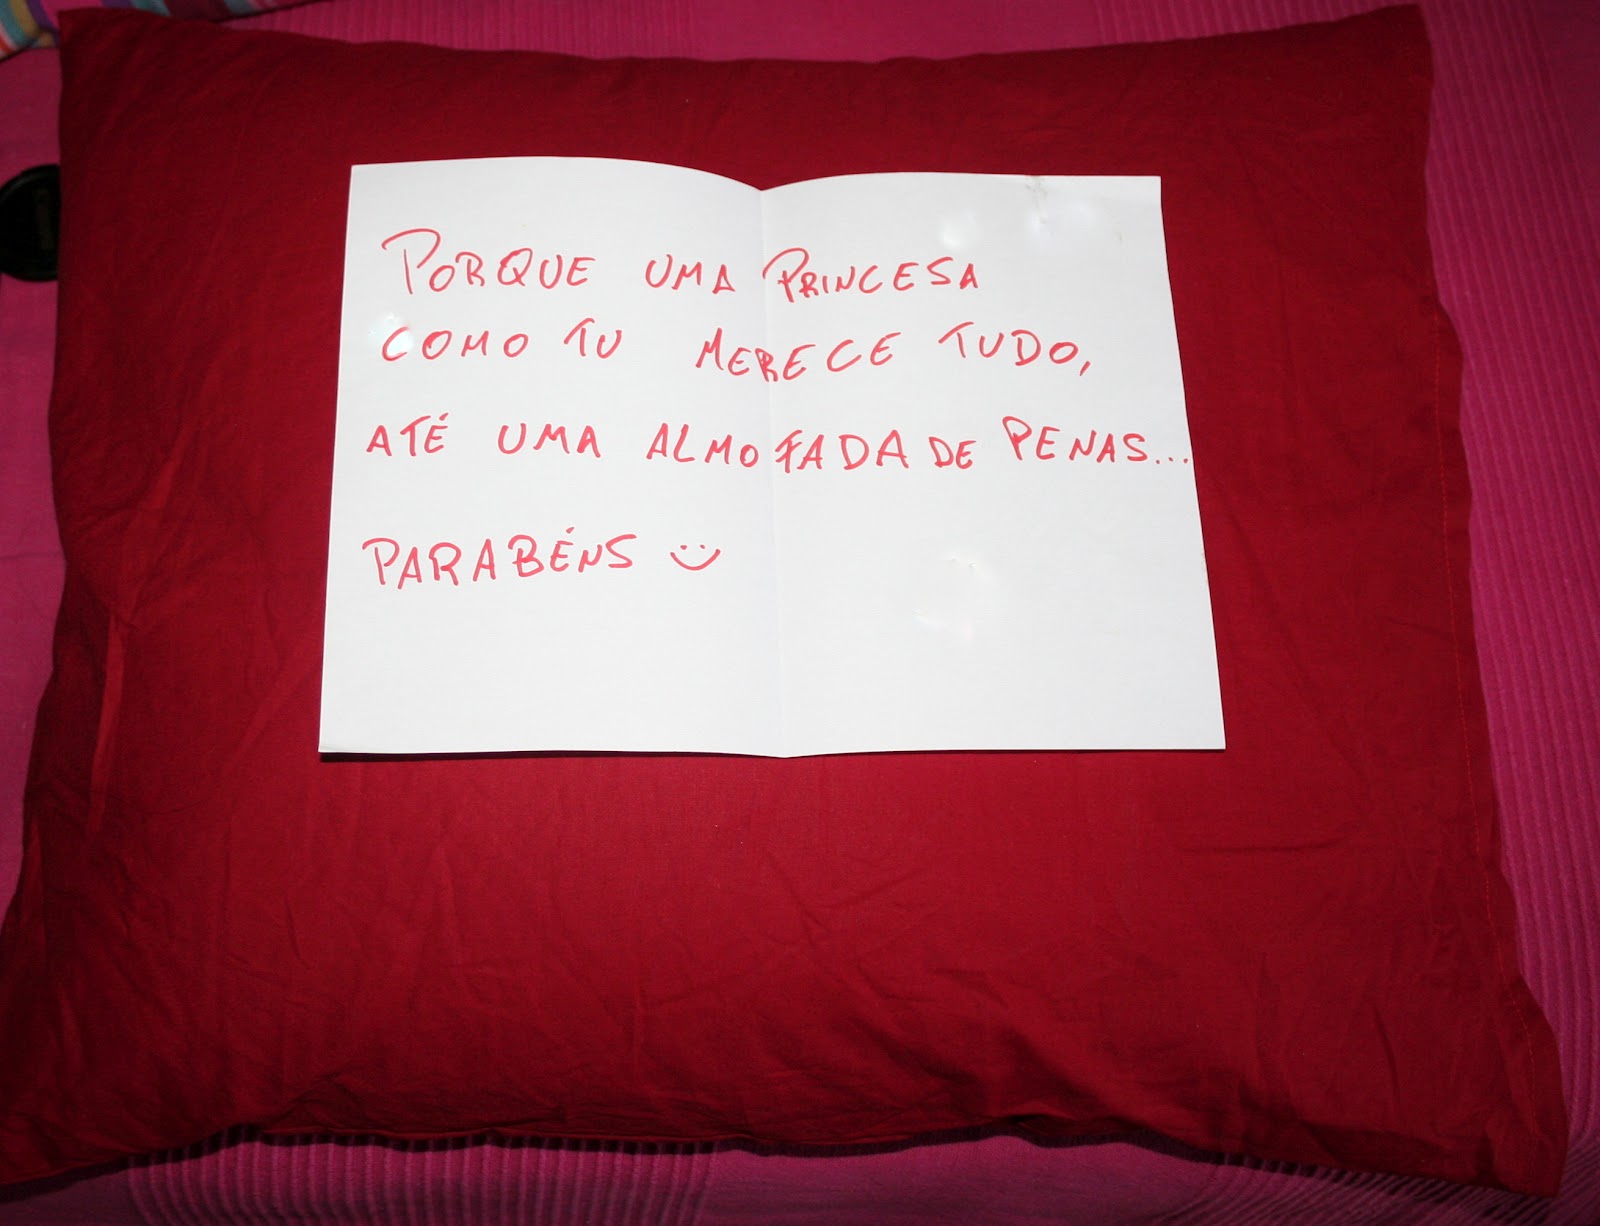 PORQUE UMA PRINCESA
COMO TU MERECE TUDO,
ATÉ UMA ALMOFADA DE PENAS...
PARABÉNS :)